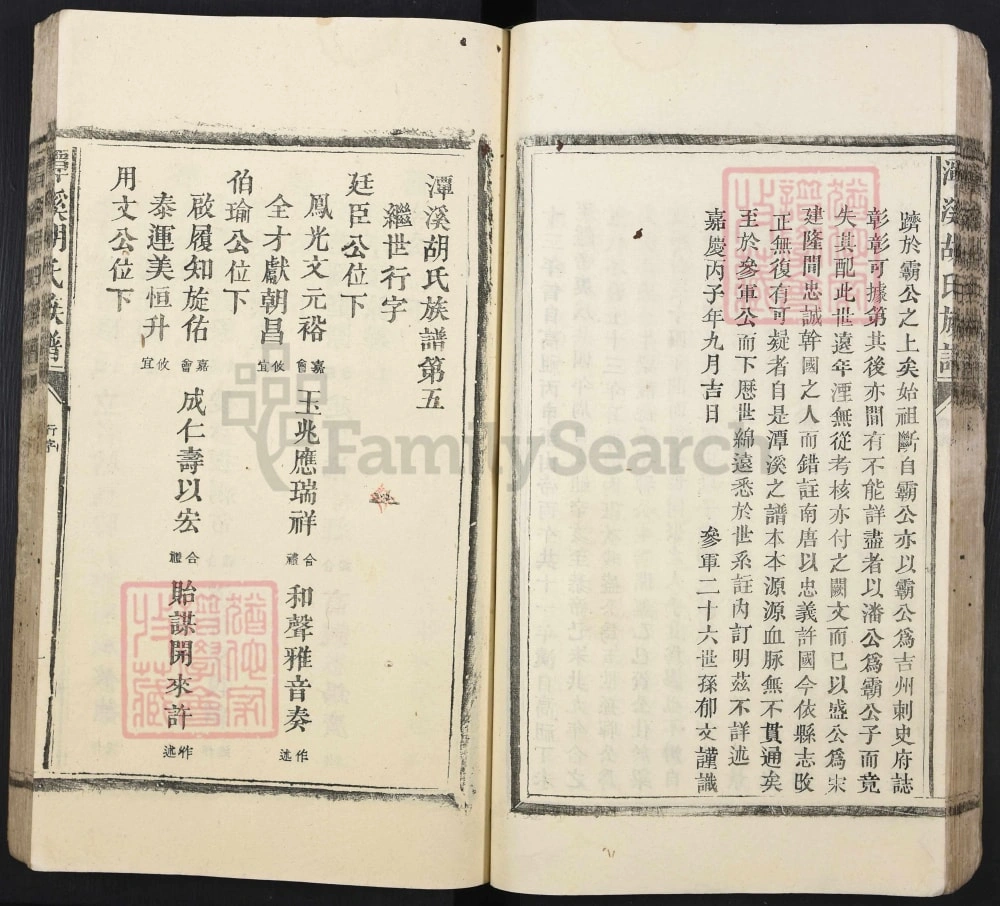 潭溪胡氏族譜
躋於霸公之上矣始祖斷自霸公亦以霸公爲吉州刺史府誌
彰彰可據第其後亦間有不能詳盡者以潘公爲霸公子而竟
失其配此世遠年湮無從考核亦付之闕文而已以盛公爲宋
建隆間忠誠幹國之人而錯註南唐以忠義許國今依縣志改
正無復有可疑者自是潭溪之譜本本源源血脉無不貫通矣
至於參軍公而下歷世綿遠悉於世系註内訂明茲不詳述
嘉慶丙子年九月吉日 參軍二十六世孫郁文謹識
潭溪胡氏族譜第五
繼世行字
廷臣公位下
鳳光文元裕 嘉會 玉兆應瑞祥 合禮 和聲雅音奏 作述
全才獻朝昌 攸宜
伯瑜公位下
啟履知旋佑 嘉會 成仁壽以宏 合禮 貽謀開來許 作述
泰運美恒升 攸宜
用文公位下
潭溪胡氏族譜
行字
FamilySearch